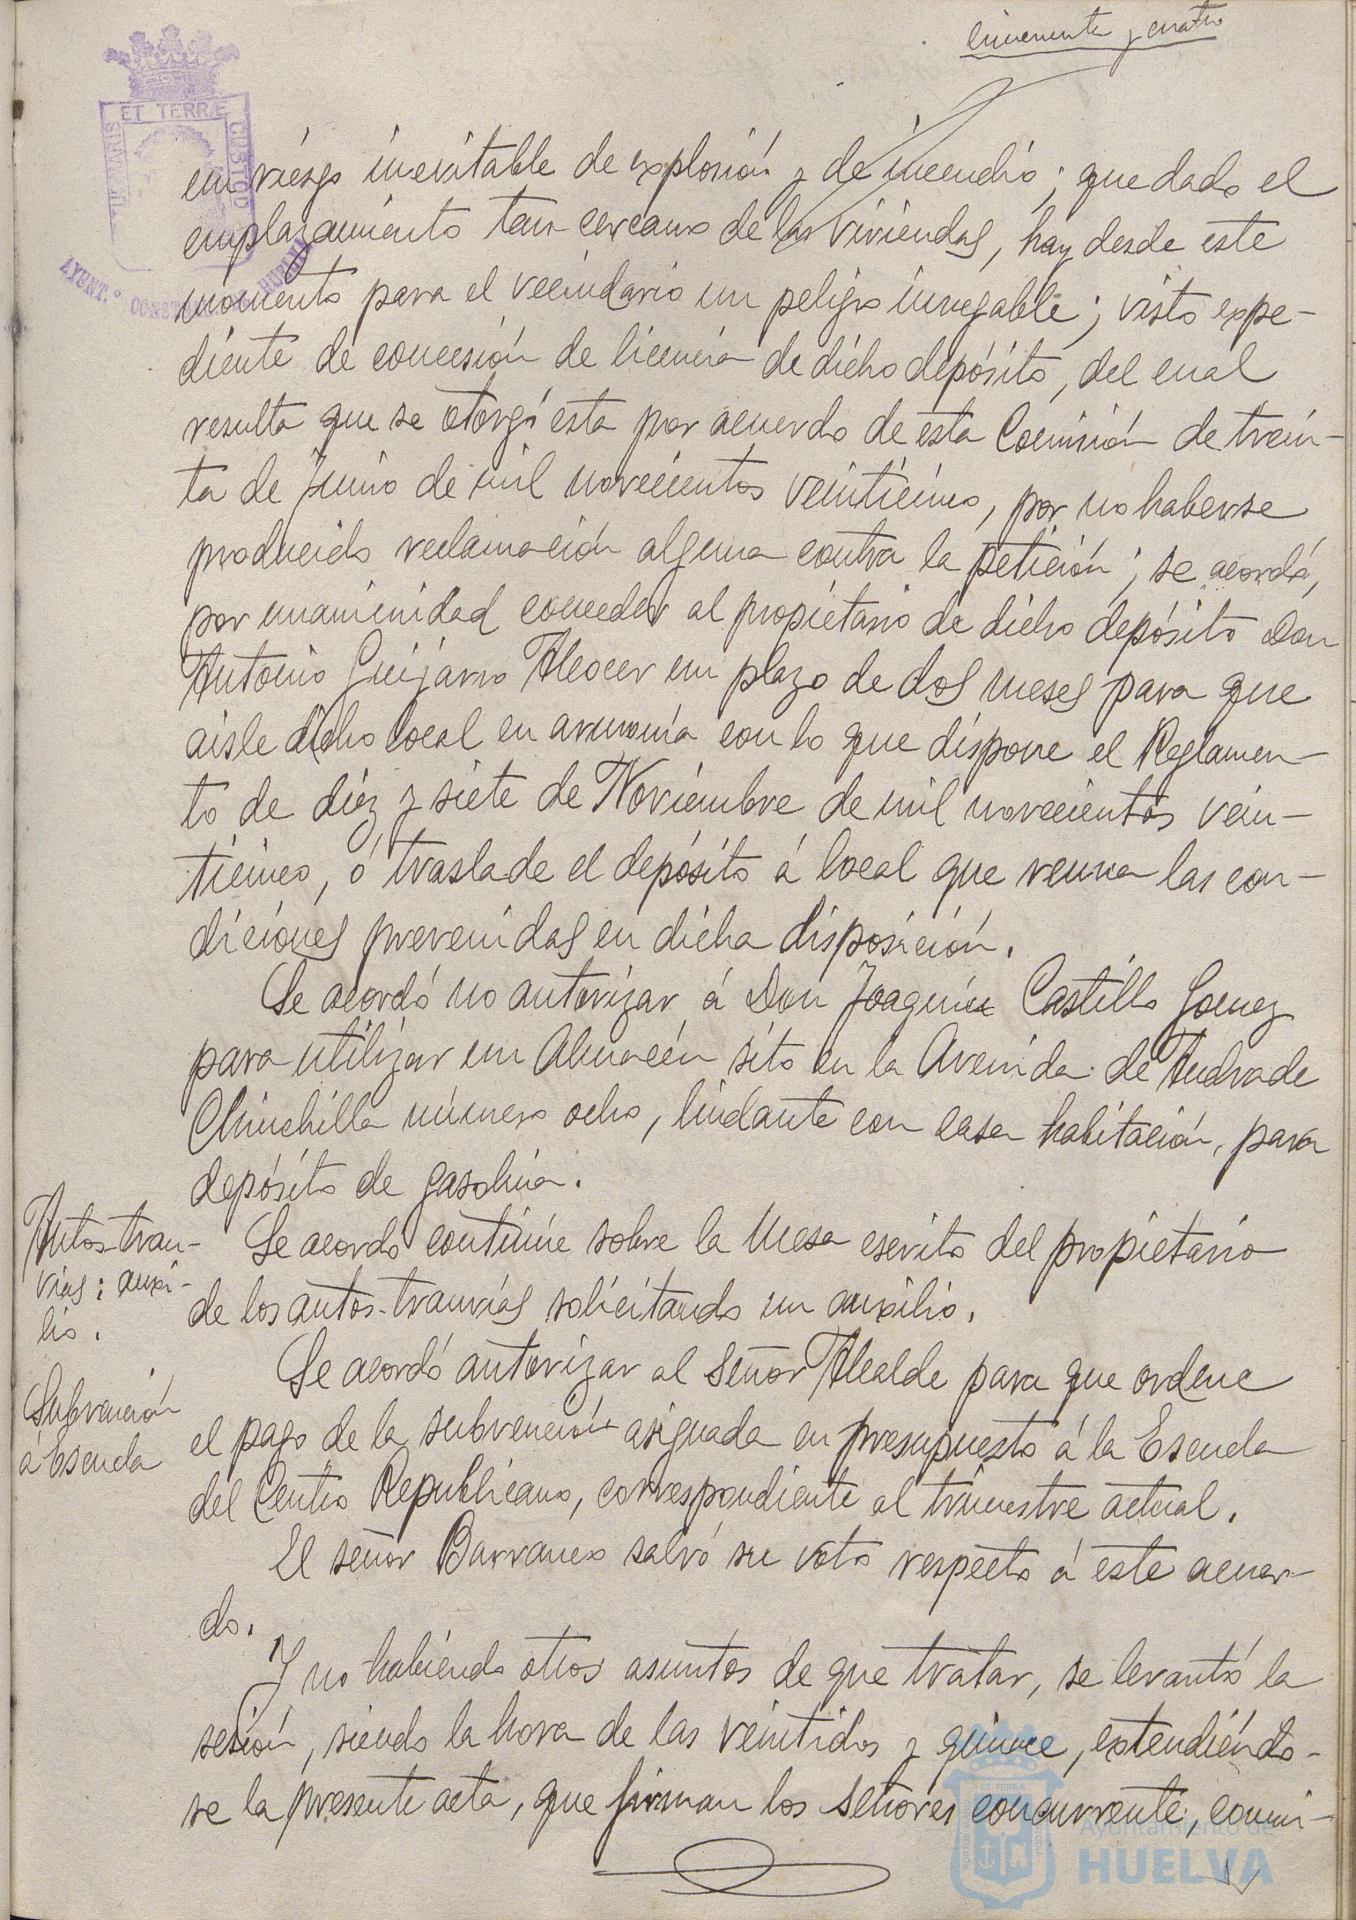 cincuenta y cuatro
ET TERRÆ
CUSTOD
AYUNT.º CONST
un riesgo inevitable de explosión y de incendio; que dado el
emplazamiento tan cercano de las viviendas, hay desde este
momento para el vecindario un peligro innegable; visto expe-
diente de concesión de licencia de dicho depósito, del cual
resulta que se otorgó esta por acuerdo de esta Comisión de trein-
ta de Junio de mil novecientos veinticinco, por no haberse
producido reclamación alguna contra la petición; se acordó,
por unanimidad conceder al propietario de dicho depósito Don
Antonio Guijarro Alcocer un plazo de dos meses para que
aisle dicho local en armonía con lo que dispone el Reglamen-
to de diez y siete de Noviembre de mil novecientos vein-
ticinco, ó traslade el depósito á local que reuna las con-
diciones prevenidas en dicha disposición.
Se acordó no autorizar á Don Joaquín Castillo Gomez
para utilizar un Almacén sito en la Avenida de Andrade
Chinchilla número ocho, lindante con casa habitación, para
depósito de gasolina.
Autos-tran-
vías: auxi-
lio.
Se acordó continúe sobre la Mesa escrito del propietario
de los autos-tranvías solicitando un auxilio.
Subvención
á Escuela
Se acordó autorizar al Señor Alcalde para que ordene
el pago de la subvención asignada en presupuesto á la Escuela
del Centro Republicano, correspondiente al trimestre actual.
El señor Barranco salvó su voto respecto á este acuer-
do.
Y no habiendo otros asuntos de que tratar, se levantó la
sesión, siendo la hora de las veintidos y quince, extendiéndo-
se la presente acta, que firman los Señores concurrente, conmi-
Ayuntamiento de
HUELVA